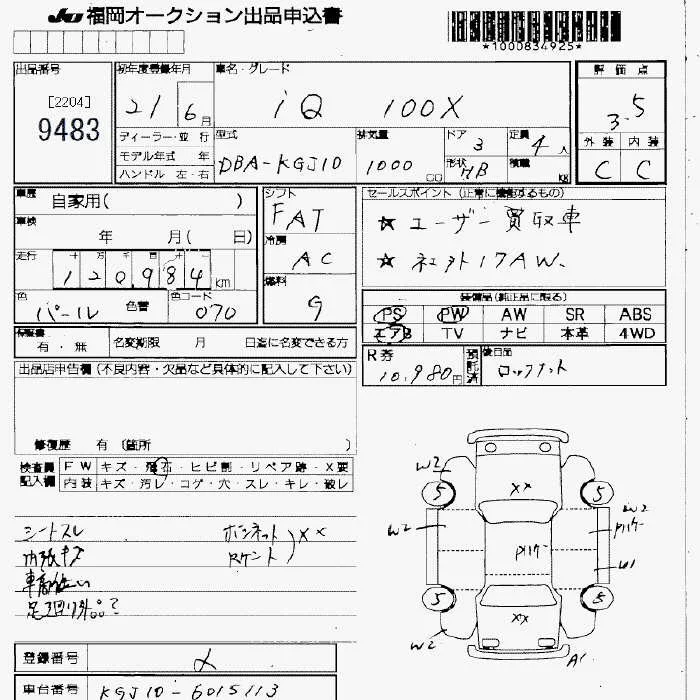 JU 福岡オークション出品申込書
*1000834925*
出品番号
[2204]
9483
初年度登録年月
21 6月
車名・グレード
iQ 100X
評価点
3.5
外装 内装
C C
ディーラー・並行
モデル年式 年
ハンドル 左・右
型式
DBA-KGJ10
排気量
1000
CC
ドア
3
形状
HB
定員
4人
積載
KG
車歴
自家用( )
車検
年 月( 日)
走行
十 万 千 百 十 一
120984 km
色
パール
色替
色コード
070
シフト
FAT
冷房
AC
燃料
G
セールスポイント (正常に機能するもの)
★ユーザー買取車
★社外17AW、
装備品(純正品に限る)
PS PW AW SR ABS
エアB TV ナビ 本革 4WD
保証書
有・無
名変期限 月 日迄に名変できる方
R券
10,980円
預託済
後日品
ロックナット
出品店申告欄 (不良内容・欠品など具体的に記入して下さい)
修復歴 有 (箇所 )
検査員
記入欄
FW キズ・飛石・ヒビ割・リペア跡・X要
内装 キズ・汚レ・コゲ・穴・スレ・キレ・破レ
シートスレ
内張キズ
車高低い
足廻り外品?
ボンネット
Rゲント
)××
W2
5
W2
5
W2
XX
XX
5
W2
W1
5
A1
登録番号
メ
車台番号
KGJ10-6015113